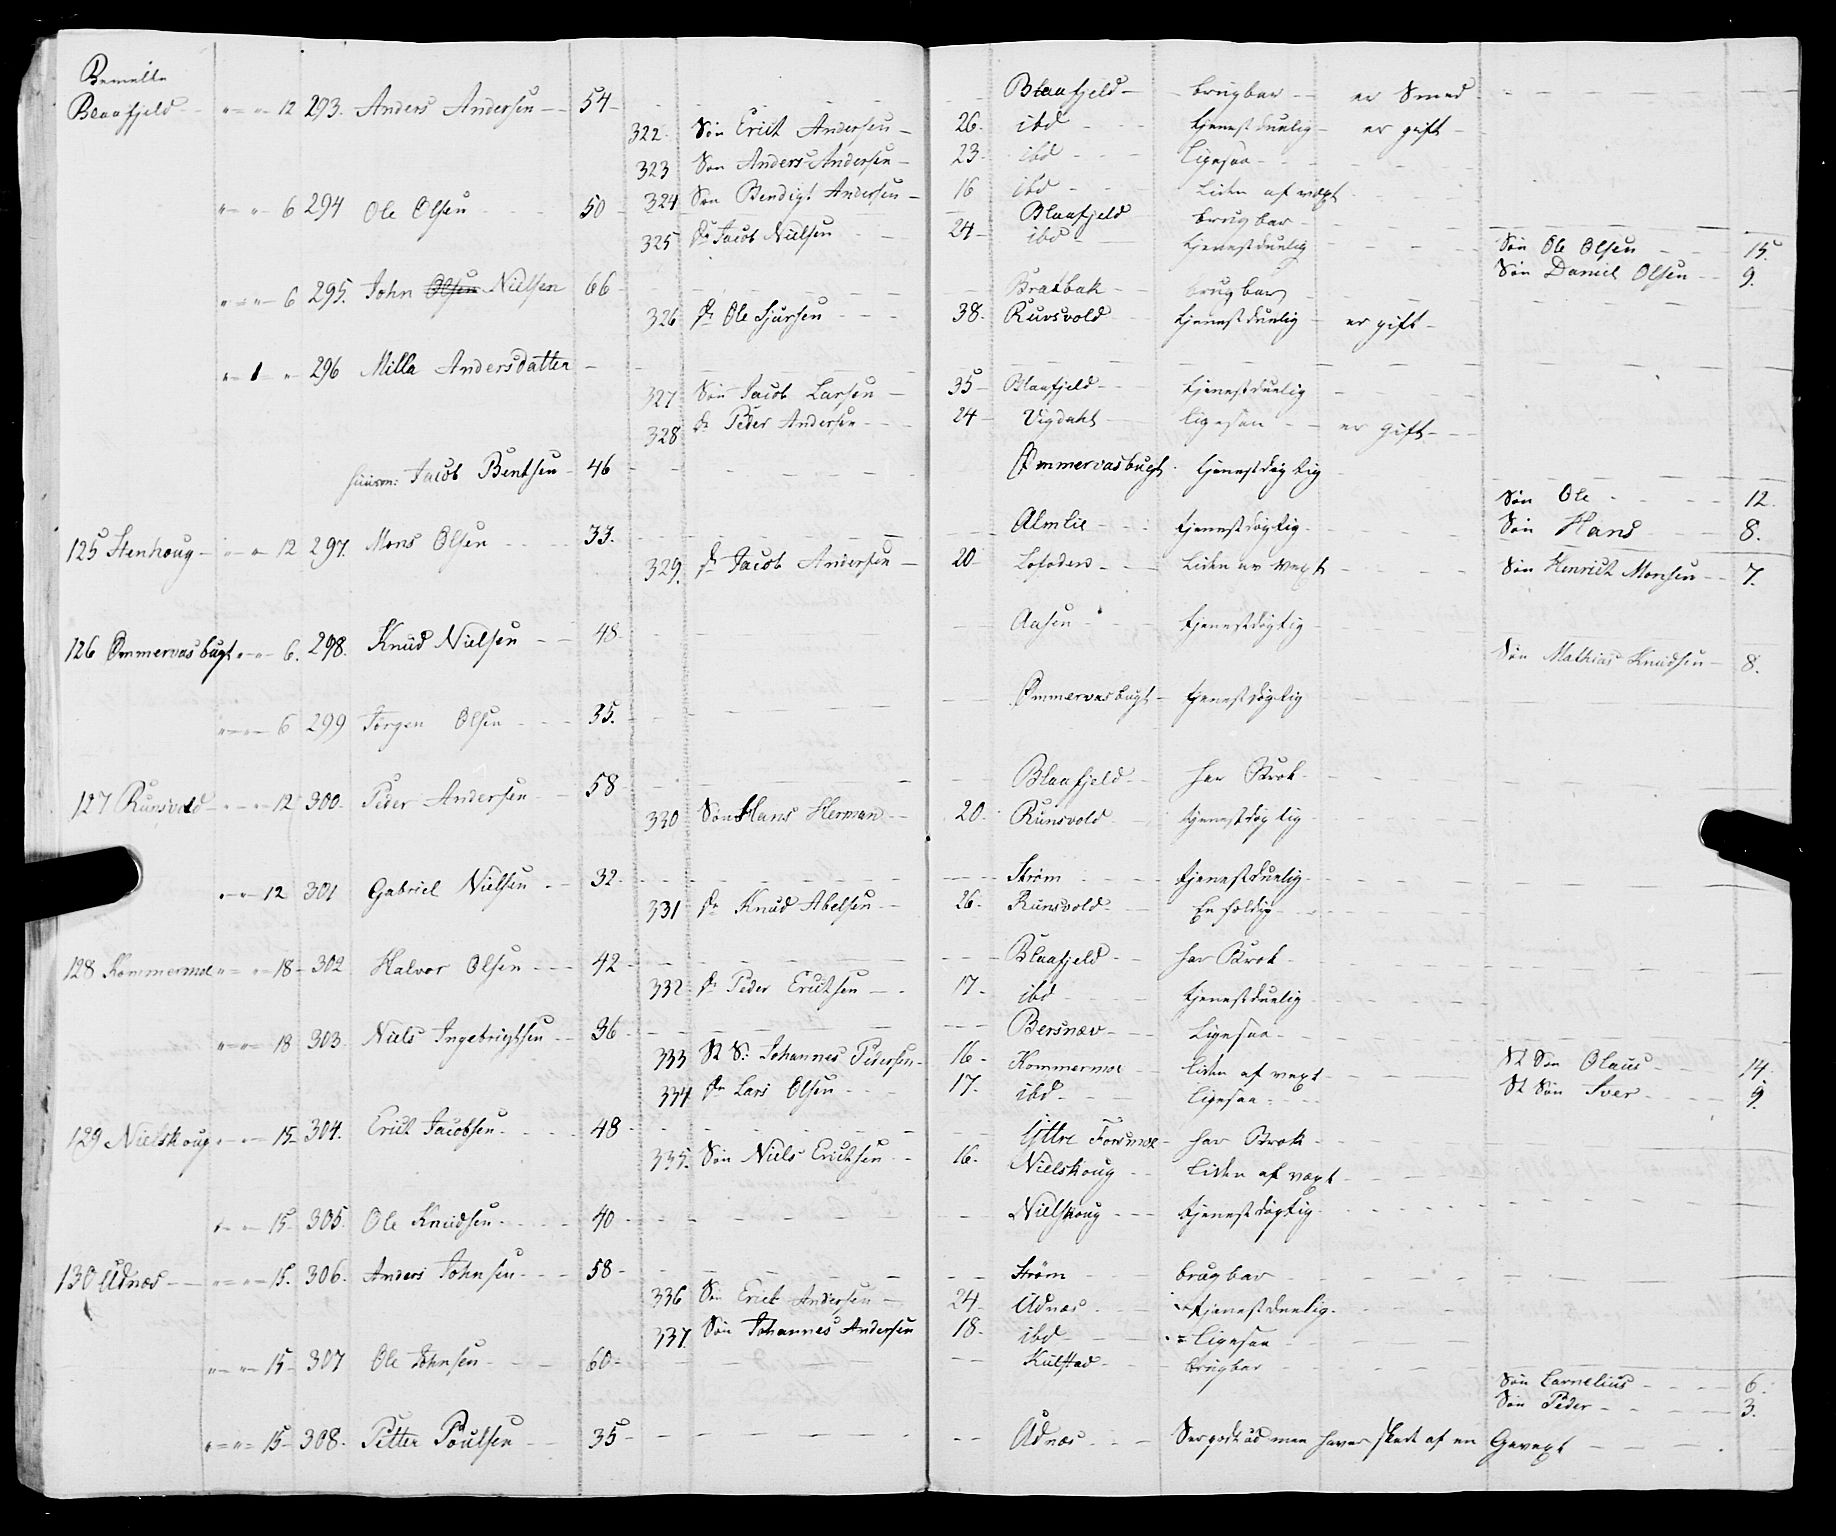 Bemelte
Blaafjeld - " " 12 293. Anders Andersen 54 - Blaafjeld - brugbar - er Smed
322. Søn Erich Andersen - 26. ibd - tjenestduelig - er gift -
323 Søn Anders Andersen - 23. ibd - Ligesaa -
324 Søn Bendigt Andersen - 16 ibd - Liden af væxt
" " 6 294 Ole Olsen 50 - Blaafjeld brugbar -
325 Jacob Nielsen 24 - ibd - tjenestduelig
Søn Ole Olsen 15.
Søn Daniel Olsen 9.
" " 6 295. John Olsen Nielsen 66 - Bratbak brugbar
326 Ole Sjursen 38. Runsvold tjenestduelig - er gift -
" 1 " 296 Milla Andersdatter -
327 Søn Jacob Larsen - 35 - Blaafjeld - tjenestduelig
328 Peder Andersen 24 - Vigdahl ligesaa - er gift -
huusm: Jacob Bentsen - 46 Ømmervasbugt. tjenestdøgtig
Søn Ole 12.
Søn Hans 8.
125 Stenhoug - " " 12 297. Mons Olsen 33. Almlie - tjenestdøgtig -
329. Jacob Andersen - 20 - Lofoden - Liden av Vext Søn Henrich Monsen 7.
126 Ømmervasbugt " " 6. 298. Knud Nielsen 48 - Aasen tjenestdøgtig
Søn Mathias Knudsen - 8.
" " 6 299 Jørgen Olsen 35. Ømmervasbugt - tjenestdøgtig
127 Runsvold - " " 12 300. Peder Andersen 58 - Blaafjeld - har Brok -
330 Søn Hans Herman 20. Runsvold tjenestdøgtig
" " 12 301 Gabriel Nielsen 32 - Strøm tjenestduelig -
331 Knud Abelsen 26. Runsvold - Enfoldig
128 Kommermoe " " 18 - 302 Halvor Olsen 42 - Blaafjeld - har Brok -
332 Peder Erichsen 17. ibd tjenestduelig
" " 18 303 Niels Ingebrigtsen 36 - Bersnæv - Ligesaa -
333 St S: Johannes Pedersen - 16 - Kommermoe liden af vext St Søn Olaus 14.
334 Lars Olsen 17. ibd - Ligesaa - St Søn Iver 9.
129 Nielshoug " " 15 304. Erich Jacobsen 48 - Yttre Forsmoe - har Brok
335. Søn Niels Erichsen 16. Nielshoug Liden af væxt
" " 15 305. Ole Knudsen 40 - Nielshoug tjenestdøgtig
130 Udnæs " " 15. 306. Anders Johnsen 58 - Strøm brugbar
336 Søn Erich Andersen - 24. Udnæs tjenestduelig.
337. Søn Johannes Andersen 18. ibd Ligesaa
" " 15 - 307 Ole Johnsen 60 - Kulstad brugbar
Søn Cornelius 6.
Søn Peder 3.
" " 15 - 308. Petter Poulsen 35 - Udnæs Ser godt ud men haver skadt af en Gevext